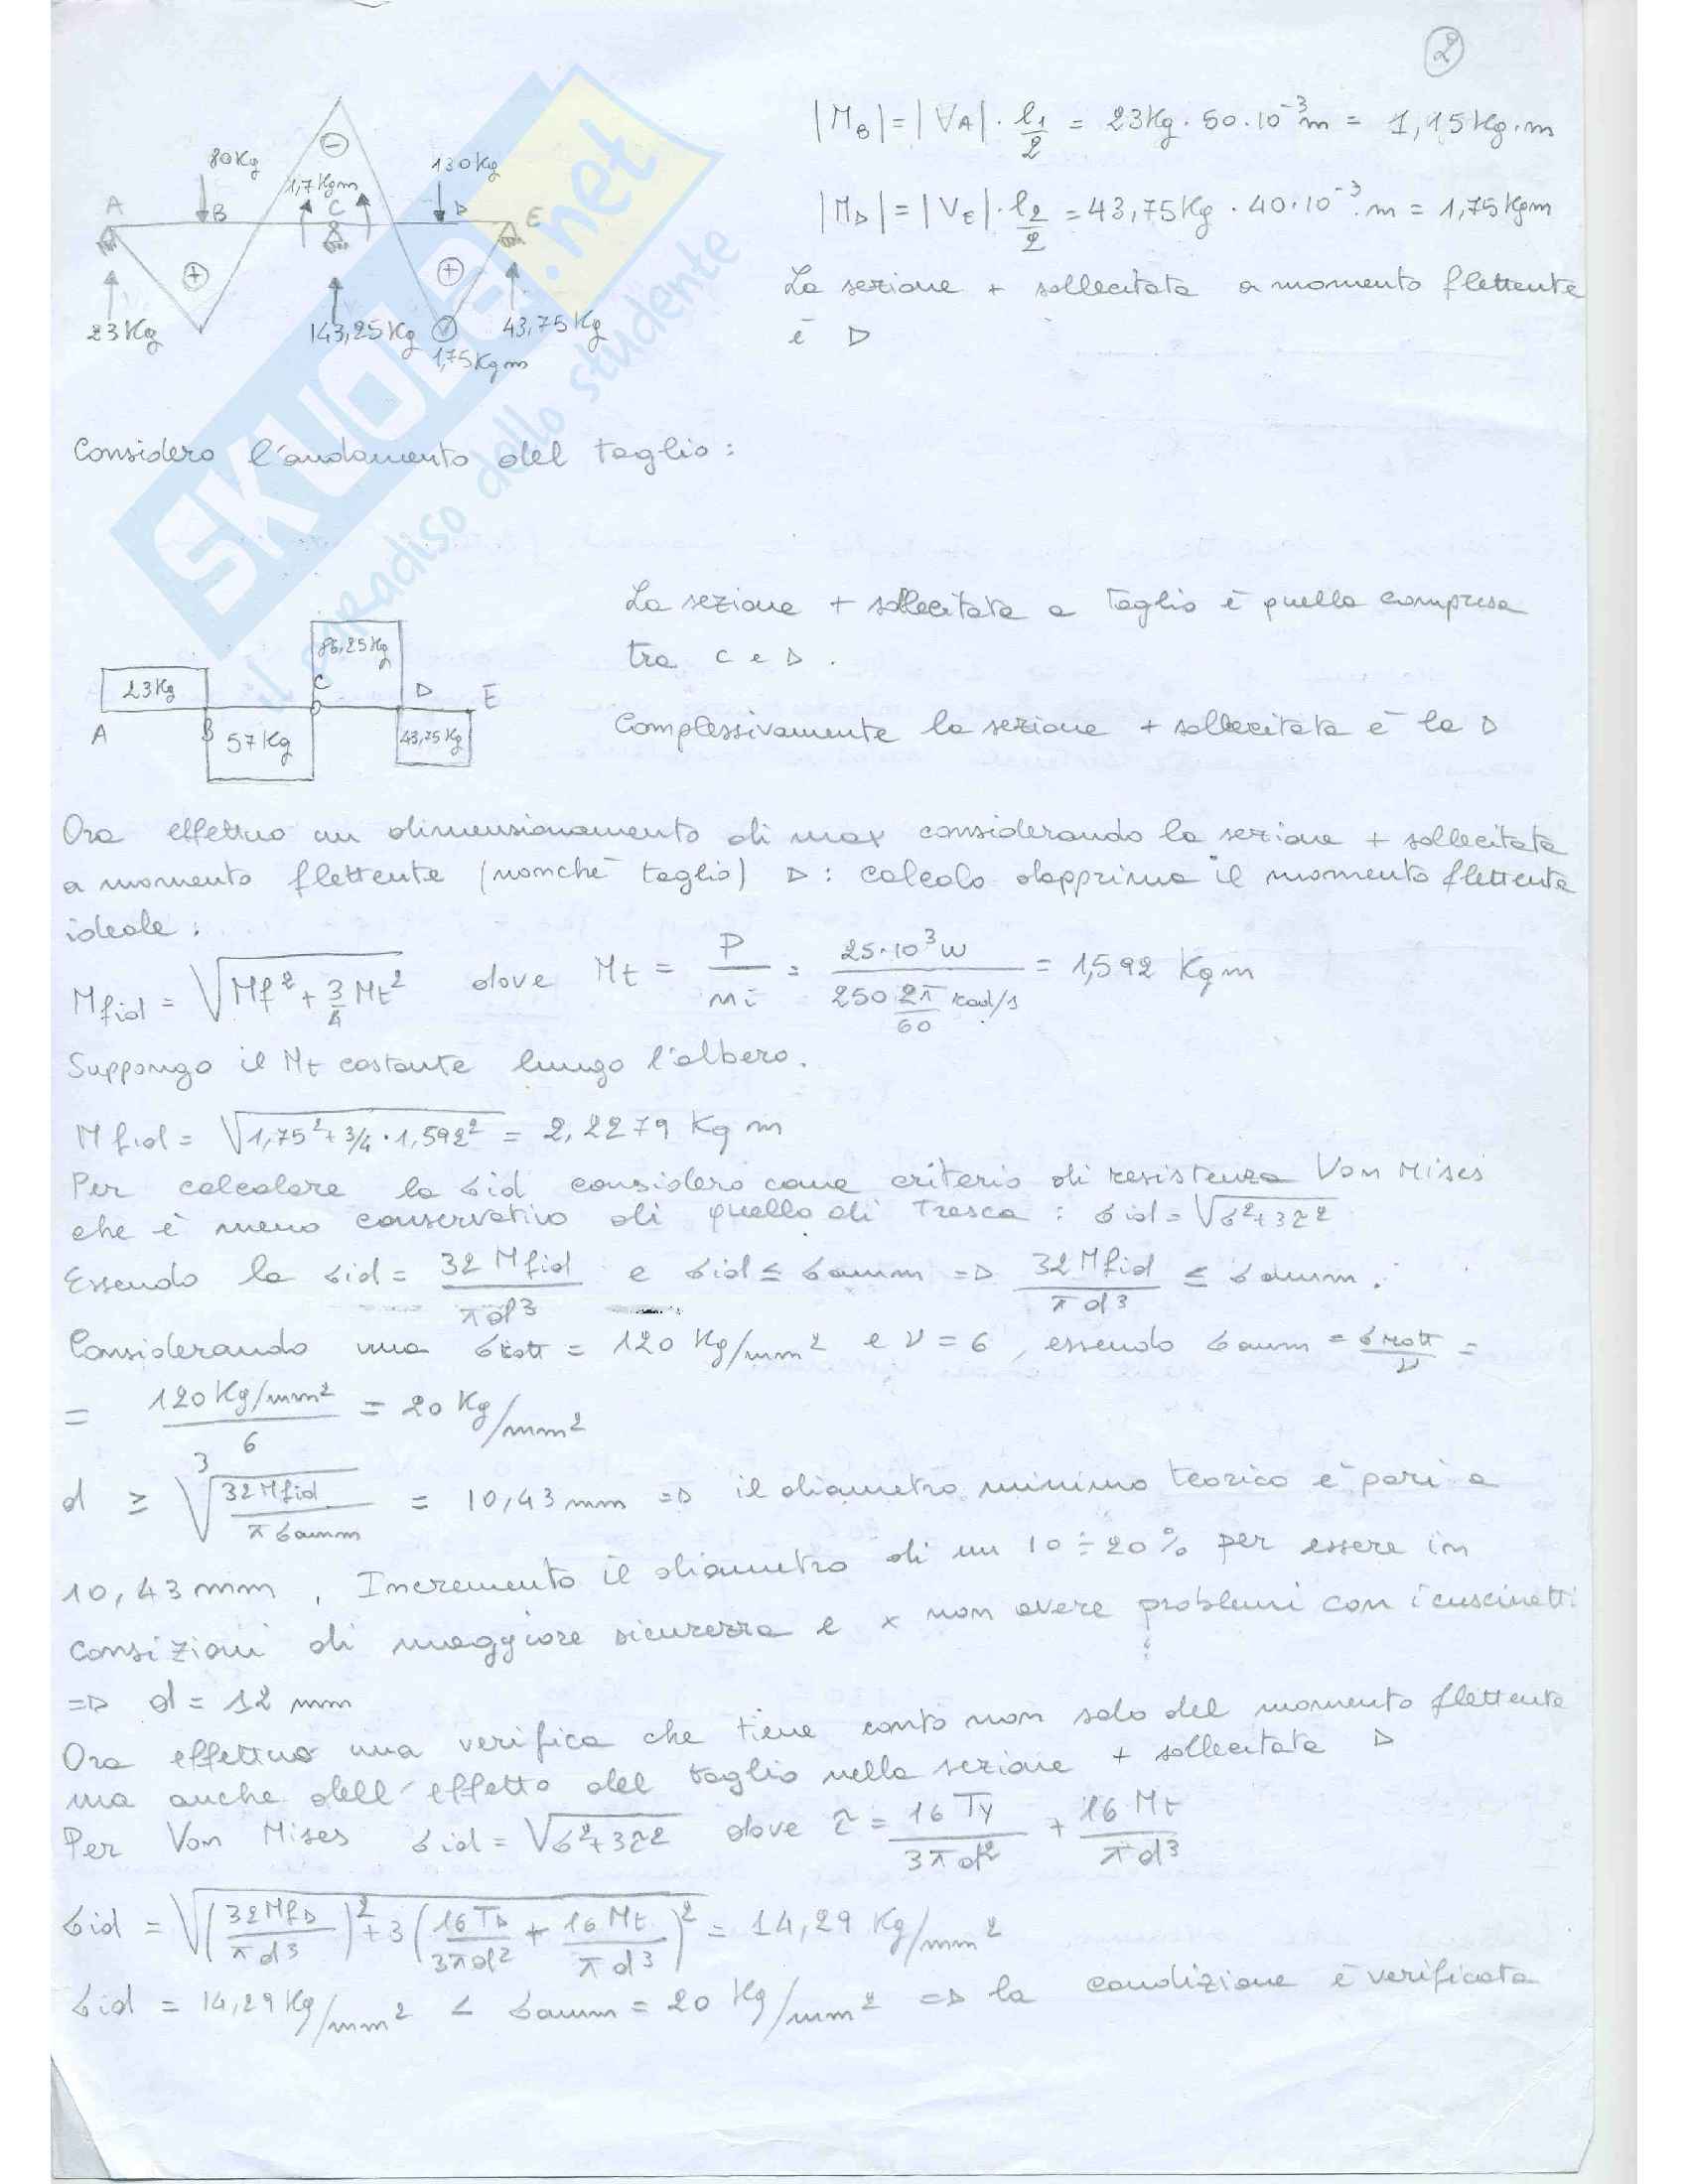 2
|M_B| = |V_A| · l₁/2 = 23Kg · 50·10⁻³m = 1,15Kg·m
|M_D| = |V_E| · l₂/2 = 43,75Kg · 40·10⁻³ m = 1,75Kgm
La sezione + sollecitata a momento flettente
è D
80Kg
130Kg
1,7Kgm
A
B
C
D
E
-
+
+
23Kg
143,25Kg
43,75Kg
1,75Kgm
SKUOLA.net
il paradiso dello studente
Considero l'andamento del taglio:
La sezione + sollecitata a taglio è quella compresa
tra C e D.
86,25Kg
23Kg
C
D
E
A
B
57Kg
43,75Kg
Complessivamente la sezione + sollecitata è la D
Ora effettuo un dimensionamento di max considerando la sezione + sollecitata
a momento flettente (nonchè taglio) D: calcolo dapprima il momento flettente
ideale:
Mfid = √(Mf² + 3/4 Mt²) dove Mt = P/mi = 25·10³w / (250 2π/60 rad/s) = 1,592 Kgm
Suppongo il Mt costante lungo l'albero.
Mfid = √(1,75² + 3/4 · 1,592²) = 2,2279 Kg m
Per calcolare la σid considero come criterio di resistenza Von Mises
che è meno conservativo di quello di Tresca: σid = √(σ²+3τ²)
Essendo la σid = 32 Mfid / πd³ e σid ≤ σamm => 32 Mfid / πd³ ≤ σamm.
Considerando una σrott = 120 Kg/mm² e ν = 6, essendo σamm = σrott/ν =
= 120Kg/mm² / 6 = 20 Kg/mm²
d ≥ ³√(32Mfid / πσamm) = 10,43 mm => il diametro minimo teorico è pari a
10,43 mm. Incremento il diametro di un 10÷20% per essere in
consizioni di maggiore sicurezza e x non avere problemi con i cuscinetti
=> d = 12 mm
Ora effettuo una verifica che tiene conto non solo del momento flettente
ma anche dell'effetto del taglio nella sezione + sollecitata D
Per Von Mises σid = √(σ²+3τ²) dove τ = 16 Ty / 3πd² + 16 Mt / πd³
σid = √((32MfD / πd³)² + 3(16TD / 3πd² + 16 Mt / πd³)²) = 14,29 Kg/mm²
σid = 14,29Kg/mm² < σamm = 20 Kg/mm² => la condizione è verificata